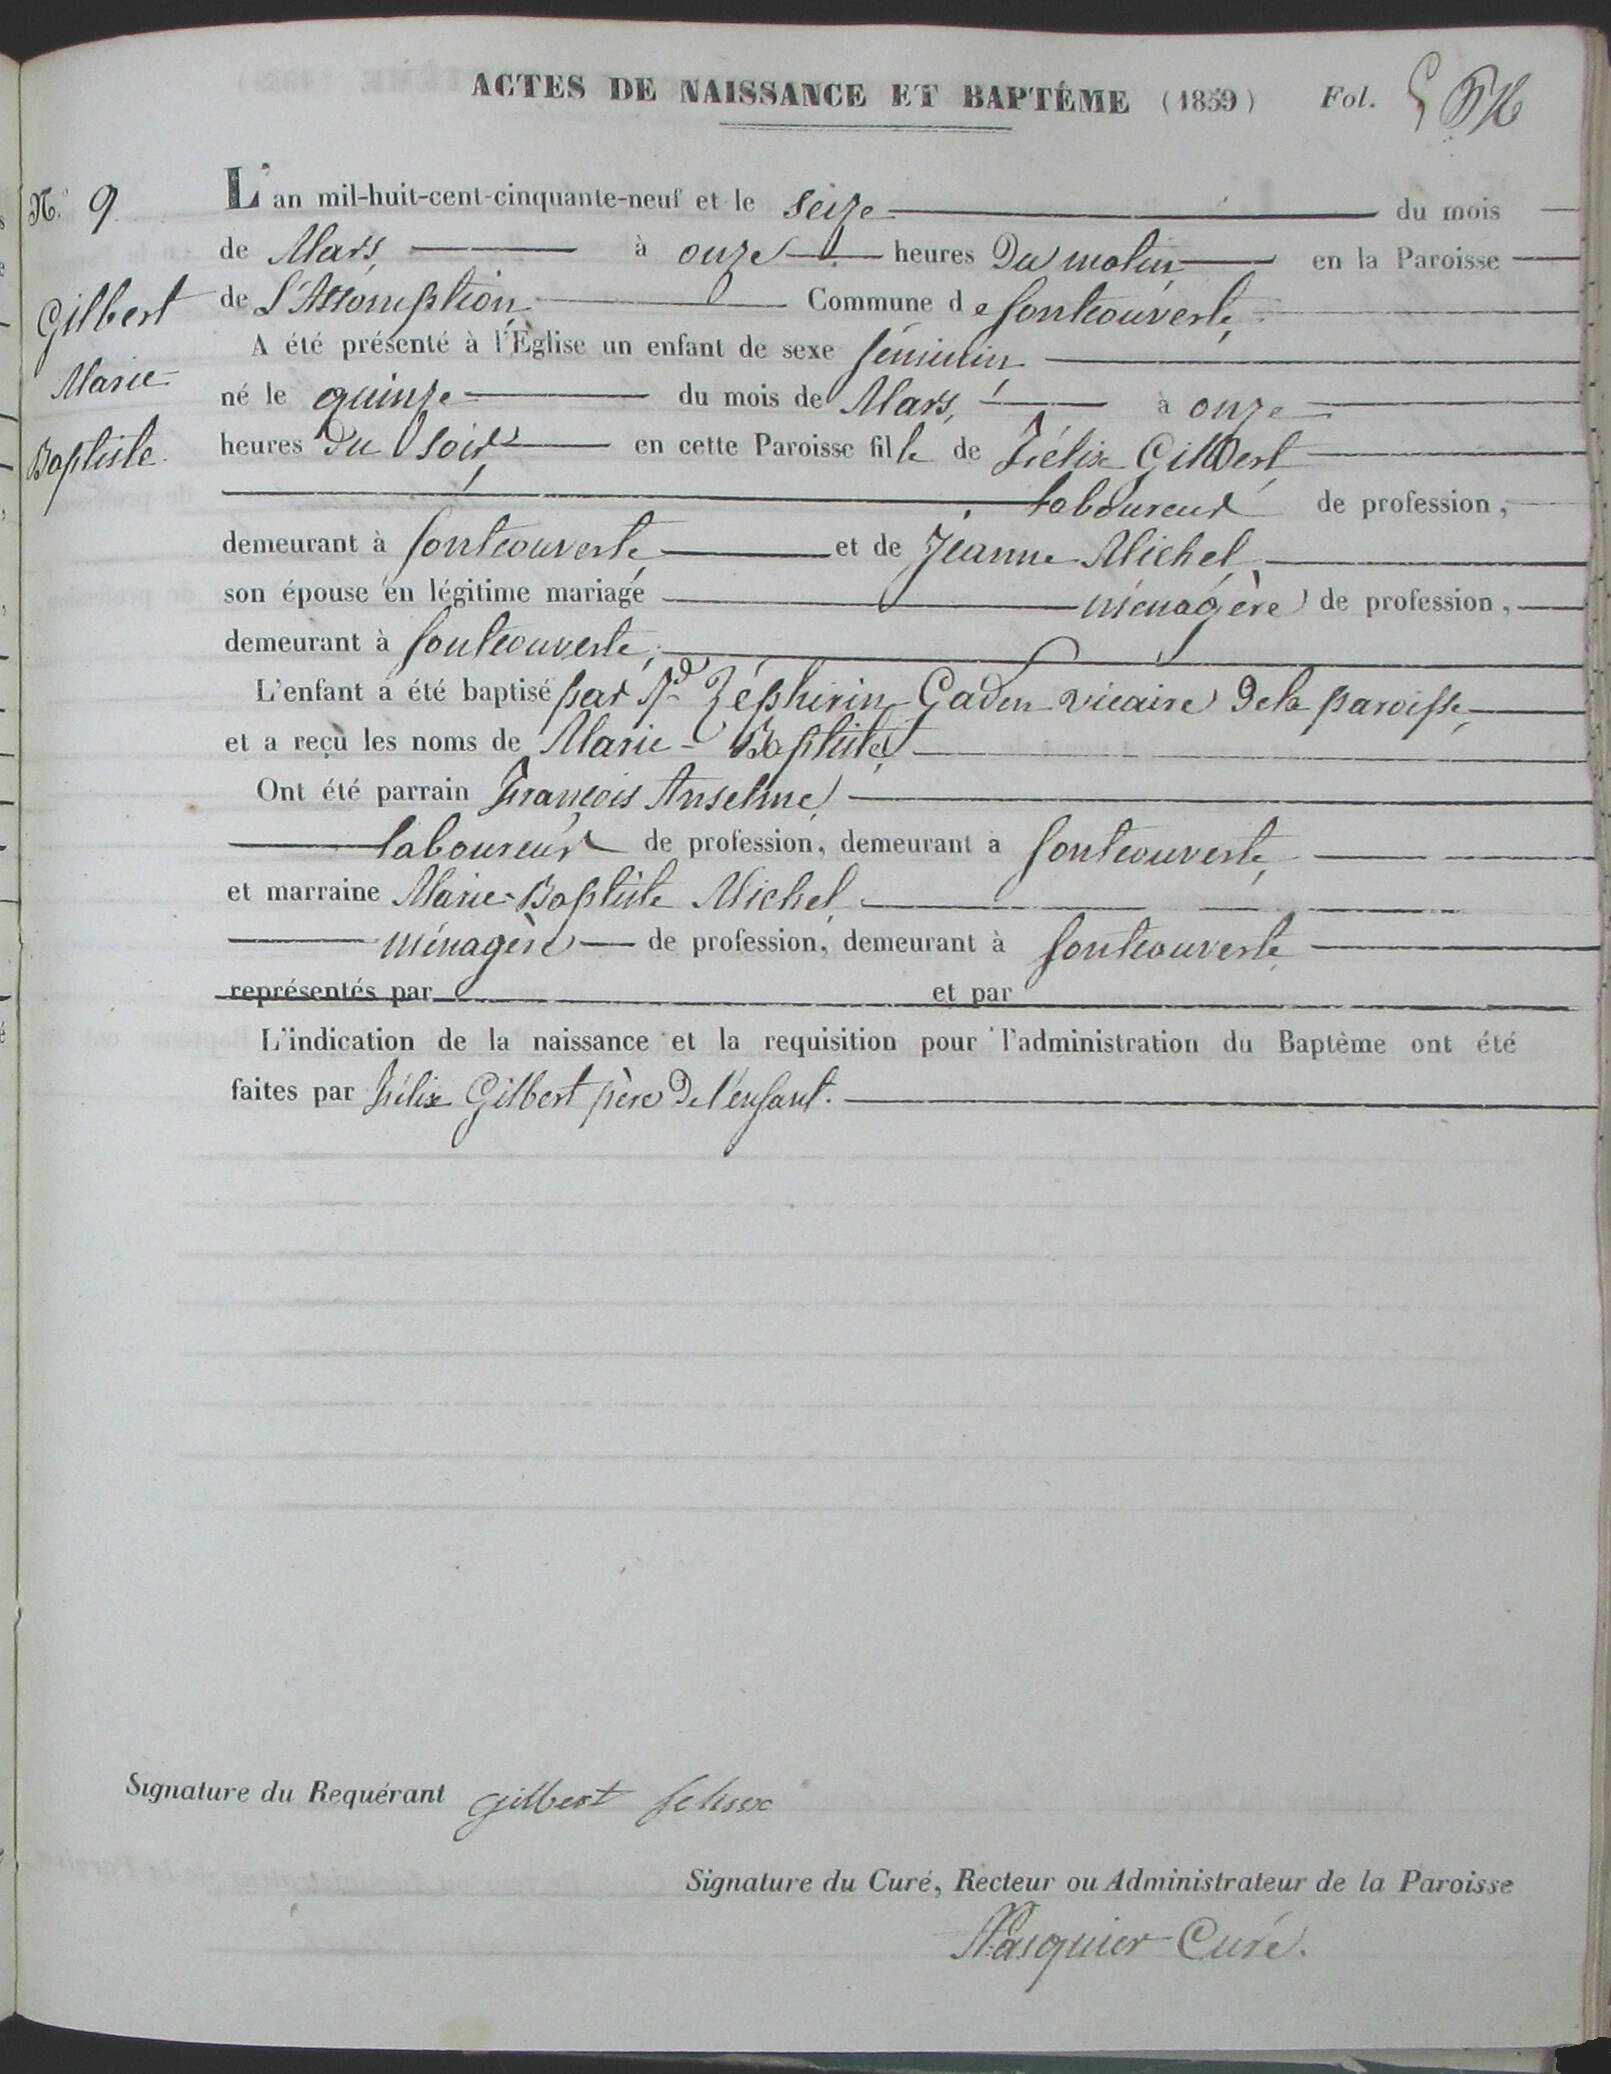 ACTES DE NAISSANCE ET BAPTÊME (1859) Fol. 5
N.° 9
L'an mil-huit-cent-cinquante-neuf et le seize du mois
de Mars, à onze heures du matin en la Paroisse
Gilbert
de L'Assomption Commune de fontcouverte,
A été présenté à l'Église un enfant de sexe féminin
Marie
né le quinze du mois de Mars, à onze
Baptiste.
heures du soir en cette Paroisse fille de Félix Gilbert
laboureur de profession,
demeurant à fontcouverte, et de Jeanne Michel
son épouse en légitime mariage ménagère de profession,
demeurant à fontcouverte,
L'enfant a été baptisé par Rd Zéphirin Gaden vicaire de la paroisse,
et a reçu les noms de Marie-Baptiste,
Ont été parrain François Anselme,
laboureur de profession, demeurant a fontcouverte,
et marraine Marie-Baptiste Michel
ménagère de profession, demeurant à fontcouverte
représentés par et par
L'indication de la naissance et la requisition pour l'administration du Baptême ont été
faites par Félix Gilbert père de l'enfant.
Signature du Requérant gilbert felixe
Signature du Curé, Recteur ou Administrateur de la Paroisse
Pasquier Curé.